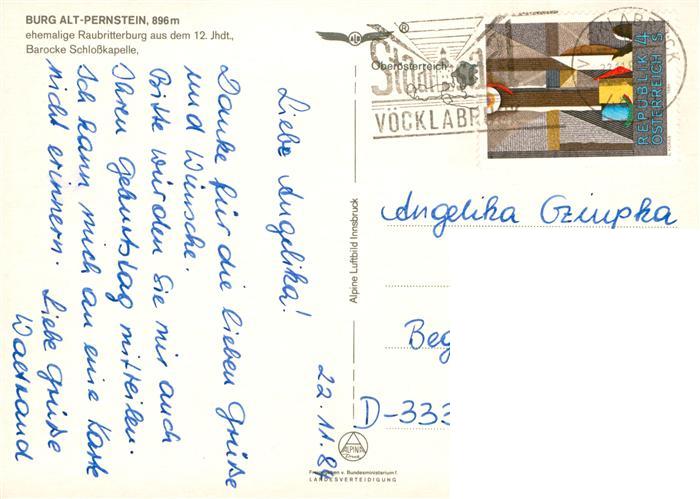 BURG ALT-PERNSTEIN, 896 m
ehemalige Raubritterburg aus dem 12. Jhdt.,
Barocke Schloßkapelle,
Oberösterreich
22.11.84
Liebe Angelika!
Danke für die lieben Grüße
und Wünsche.
Bitte würden Sie mir auch
Ihren Geburtstag mitteilen.
Ich kann mich an eine Karte
nicht erinnern. Liebe Grüße
Waltraud
Alpine Luftbild Innsbruck
ALPINA
Freigegeben v. Bundesministerium f.
LANDESVERTEIDIGUNG
VÖCKLABRUCK
REPUBLIK
ÖSTERREICH
S 4
Angelika
Beg
D-333